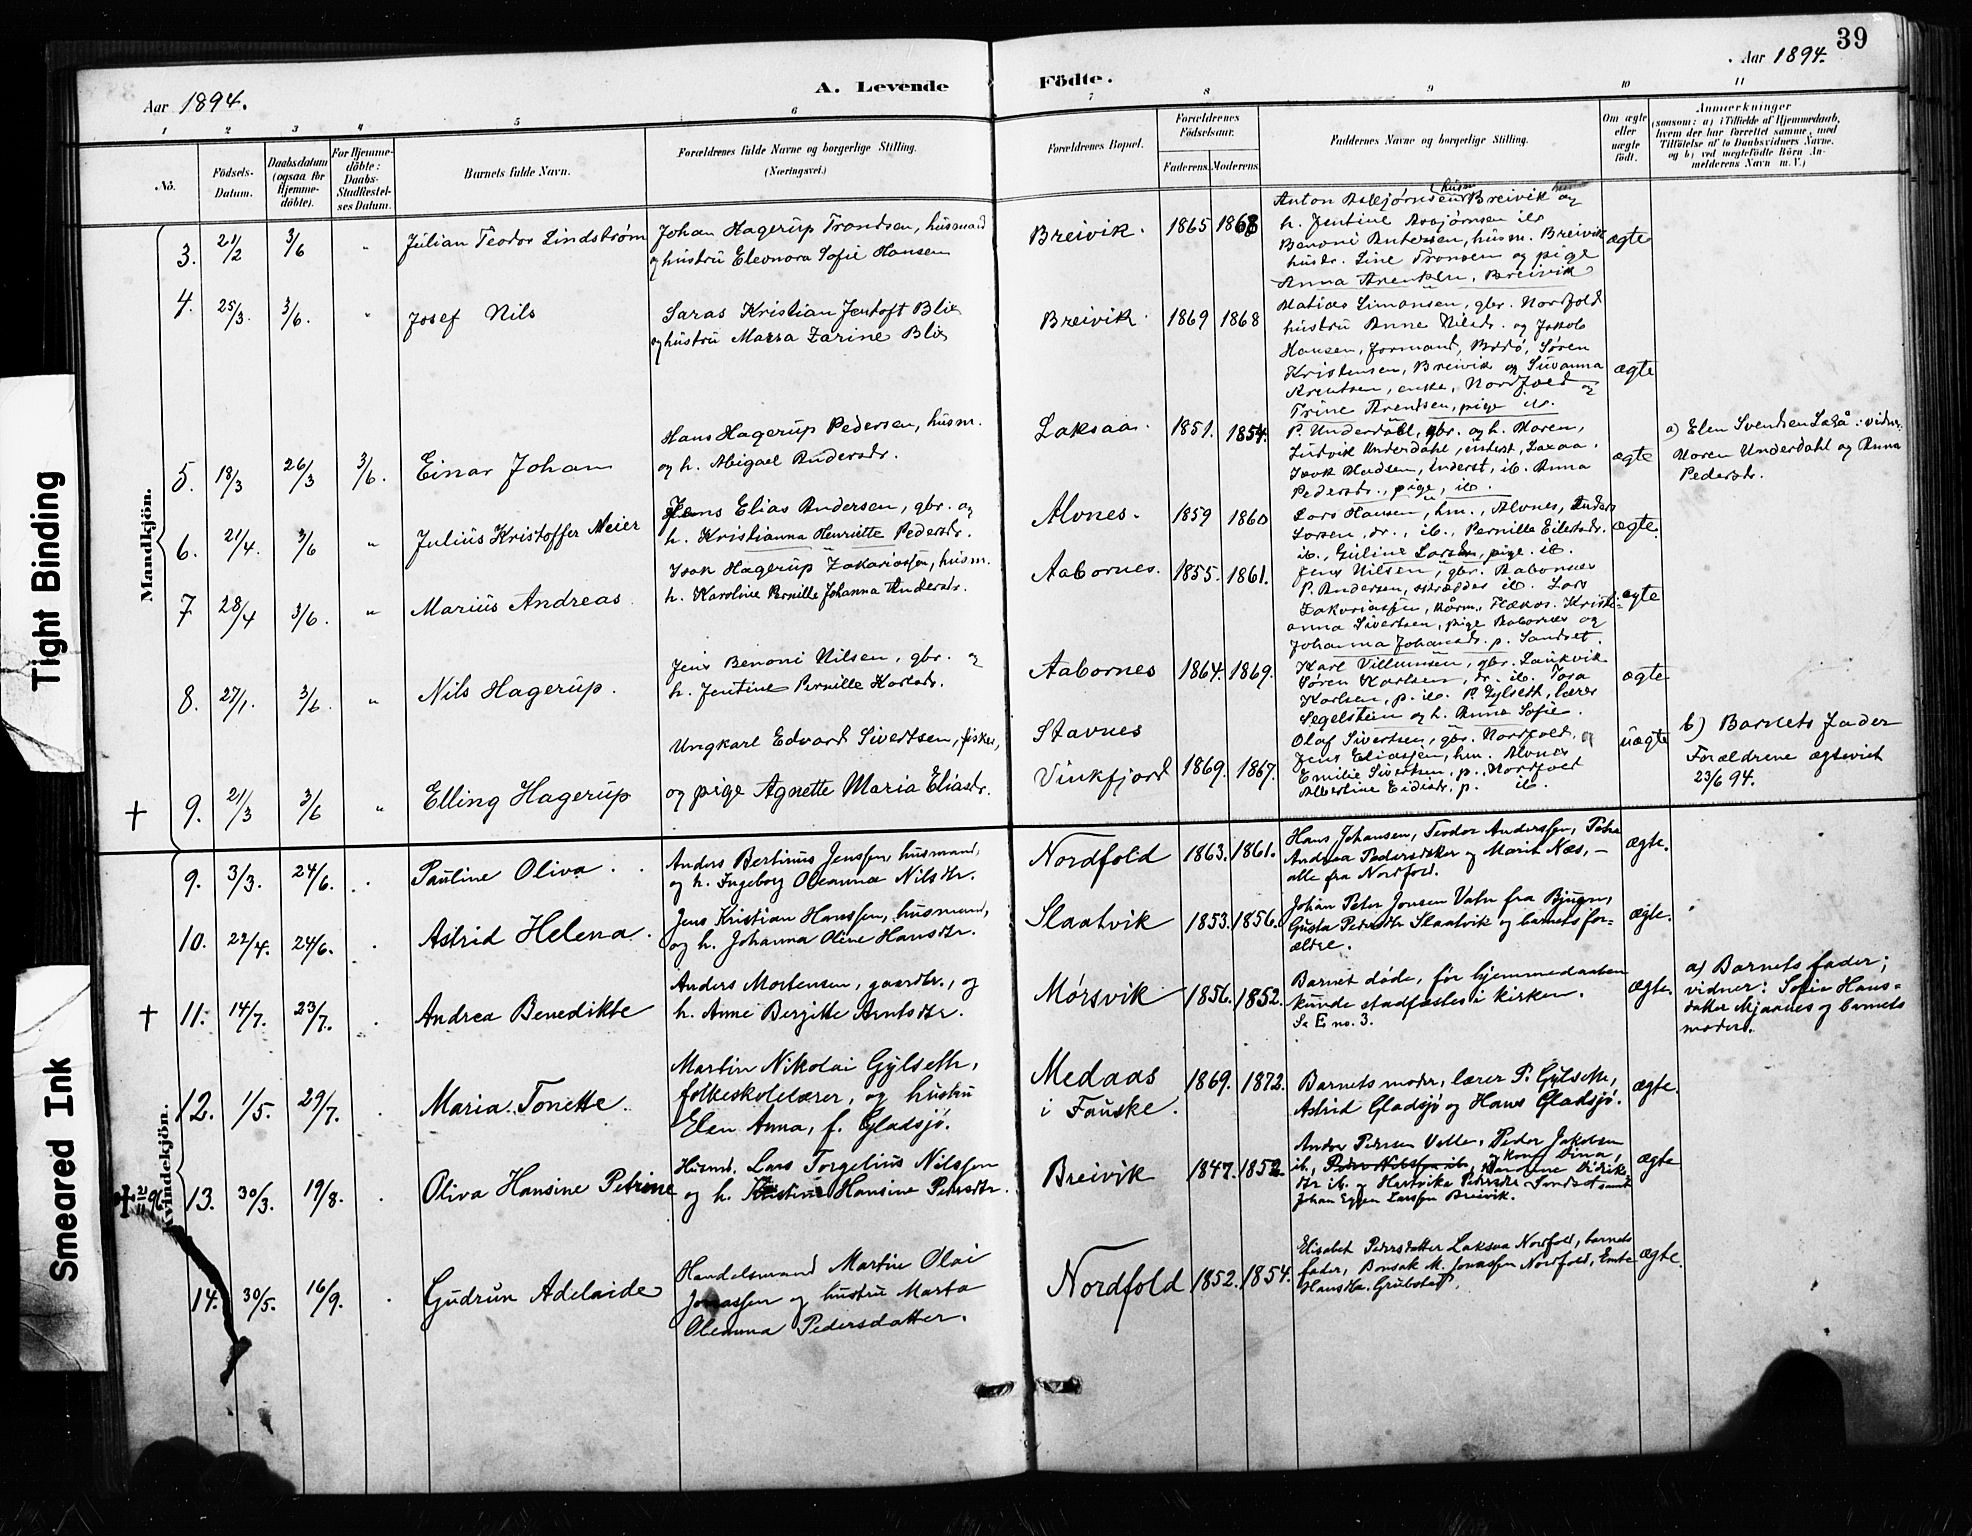 39
Aar 1894.
A. Levende
Födte.
Aar 1894.
1 2 3 4 5 6 7 8 9 10 11
No.
Födsels-
Datum.
Daabsdatum
(ogsaa for
Hjemme-
döbte).
For Hjemme-
döbte:
Daabs-
Stadfæstel-
ses Datum.
Barnets fulde Navn.
Forældrenes fulde Navne og borgerlige Stilling.
(Næringsvei.)
Forældrenes Bopæl.
Forældrenes
Födselsaar.
Faderens. Moderens.
Faddernes Navne og borgerlige Stilling.
Om ægte
eller
uægte
födt.
Anmærkninger
(saasom: a) i Tilfælde af Hjemmedaab,
hvem der har forrettet samme, med
Tilföielse af to Daabsvidners Navne,
og b) ved uægtefödte Börn An-
melderens Navn m. V.)
Mandkjön.
3. 21/2 3/6 " Julian Teodor Lindstrøm
Johan Hagerup Trondsen, husmand
og hustru Eleonora Sofie Hansen
Breivik. 1865 1868
Anton Asbjørnsen Breivik og
h. Jentine Asbjørnsen ib
Benoni Andersen, husm. Breivik
hustr. Line Tronsen og pige
Anna Arentsen, Breivik
ægte
4. 25/3. 3/6. " Josef Nils
Saras Kristian Jentoft Blix
og hustru Massa Zarine Blix
Breivik. 1869 1868
Matias Simonsen, gbr. Nordfold
hustru Anne Nilsdr. og Jakob
Hansen, formand, Bodø, Søren
Kristensen, Breivik og Susanna
Arentsen, enke, Nordfold og
Trine Arentsen, pige ib.
ægte
5. 18/3 26/3 3/6. Einar Johan
Hans Hagerup Pedersen, husm.
og h. Abigael Andersdr.
Laksaa. 1851. 1854.
P. Underdahl, gbr. og h. Maren,
Ludvik Underdahl, inderst, Laxaa.
Isak Madsen, inderst, ib. Anna
Pedersdr., pige, ib.
ægte
a) Elen Svendsen Laxå: vidner:
Maren Underdahl og Anna
Pedersdr.
6. 21/4. 3/6 " Julius Kristoffer Meier
Jens Elias Andersen, gbr. og
h. Kristianna Henriette Pedersdr.
Alvnes. 1859 1860
Lars Hansen, hm., Alvnes, Anders
Larsen, dr., ib., Pernille Eilertsdr.
ib., Guline Larsdr., pige. ib.
ægte.
7. 28/4 3/6. " Marius Andreas
Isak Hagerup Zakariassen, husm.
h. Karoline Pernille Johanna Andersdr.
Aabornes. 1855. 1861.
Jens Nilsen, gbr. Aabornes
P. Andersen, skrædder ib. Lars
Zakariassen, Kristi-
anna Sivertsen, pige Aabornes og
Johanna Johansdr. p. Sandset.
ægte
8. 27/1. 3/6 " Nils Hagerup.
Jens Benoni Nilsen, gbr. og
h. Jentine Pernille Karlsdr.
Aabornes 1864. 1869.
Karl Villumsen, gbr. Laukvik
Søren Karlsen, dr. ib. Tora
Karlsen, p. ib. P. Gylseth, lærer
Segelstein og h. Anna Sofie.
ægte
† 9. 21/3 3/6 " Elling Hagerup
Ungkarl Edvard Sivertsen, fisker,
og pige Agnette Maria Eliasdr.
Stavnes
Vinkfjord 1869. 1867.
Olaf Sivertsen, gbr. Nordfold, og
Jens Eliassen, hm. Alvnes
Emilie Sivertsen, p., Nordfold
Albertine Eidisdr. p. ib.
uægte
b) Barnets fader
Forældrene ægteviet
23/6 94.
Kvindekjön.
9. 3/3. 24/6. . Pauline Oliva.
Anders Bertinus Jenssen, husmand,
og h. Ingeborg Oleanna Nilsdtr.
Nordfold 1863. 1861.
Hans Johansen, Teodor Anderssen, Petra
Andrea Pedersdatter og Marit Næs, –
alle fra Nordfold.
ægte.
10. 22/4. 24/6. . Astrid Helena.
Jens Kristian Hanssen, husmand,
og h. Johanna Oline Hansdtr.
Slaatvik 1853. 1856.
Johan Peter Jonsen Vatn fra Bjugn,
Gusta Pedersdtr Slaatvik og barnets for-
ældre.
ægte.
† 11. 14/7. 23/7. . Andrea Benedikte
Anders Mortensen, gaardbr., og
h. Anne Bergitte Arntsdtr.
Mørsvik 1856. 1852.
Barnet døde, før hjemmedaaben
kunde stadfæstes i kirken.
Se E no. 3.
ægte.
a) Barnets fader;
vidner: Sofie Hans-
datter Mjaanes og barnets
moder.
12. 1/5. 29/7. . Maria Tonette.
Martin Nikolai Gylseth,
folkeskolelærer, og hustru
Elen Anna, f. Gladsjø.
Medaas
i Fauske. 1869. 1872.
Barnets moder, lærer P. Gylseth,
Astrid Gladsjø og Hans Gladsjø.
ægte.
13. 30/3. 19/8. . Oliva Hansine Petrine
Husmd. Lars Torgelius Nilssen
og h. Hansine Pedersdtr.
Breivik 1847. 1852.
Andor Pedersen Valle, Peder Jakobsen
ib., Peder Nilssen ib., og kone Dina,
dtr ib. og Hertvika Pedersdtr Sandset samt
Johan Eggen Larssen Breivik.
ægte
14. 30/5. 16/9. . Gudrun Adelaide
Handelsmand Martin Olai
Jonassen og hustru Marta
Oleanna Pedersdatter.
Nordfold 1852. 1854.
Elisabet Pedersdatter Laksaa Nordfold, barnets
fader, Bonsak M. Jonassen Nordfold, Enke
Hansdtr. Gruvstad.
ægte.
Tight Binding
Smeared Ink